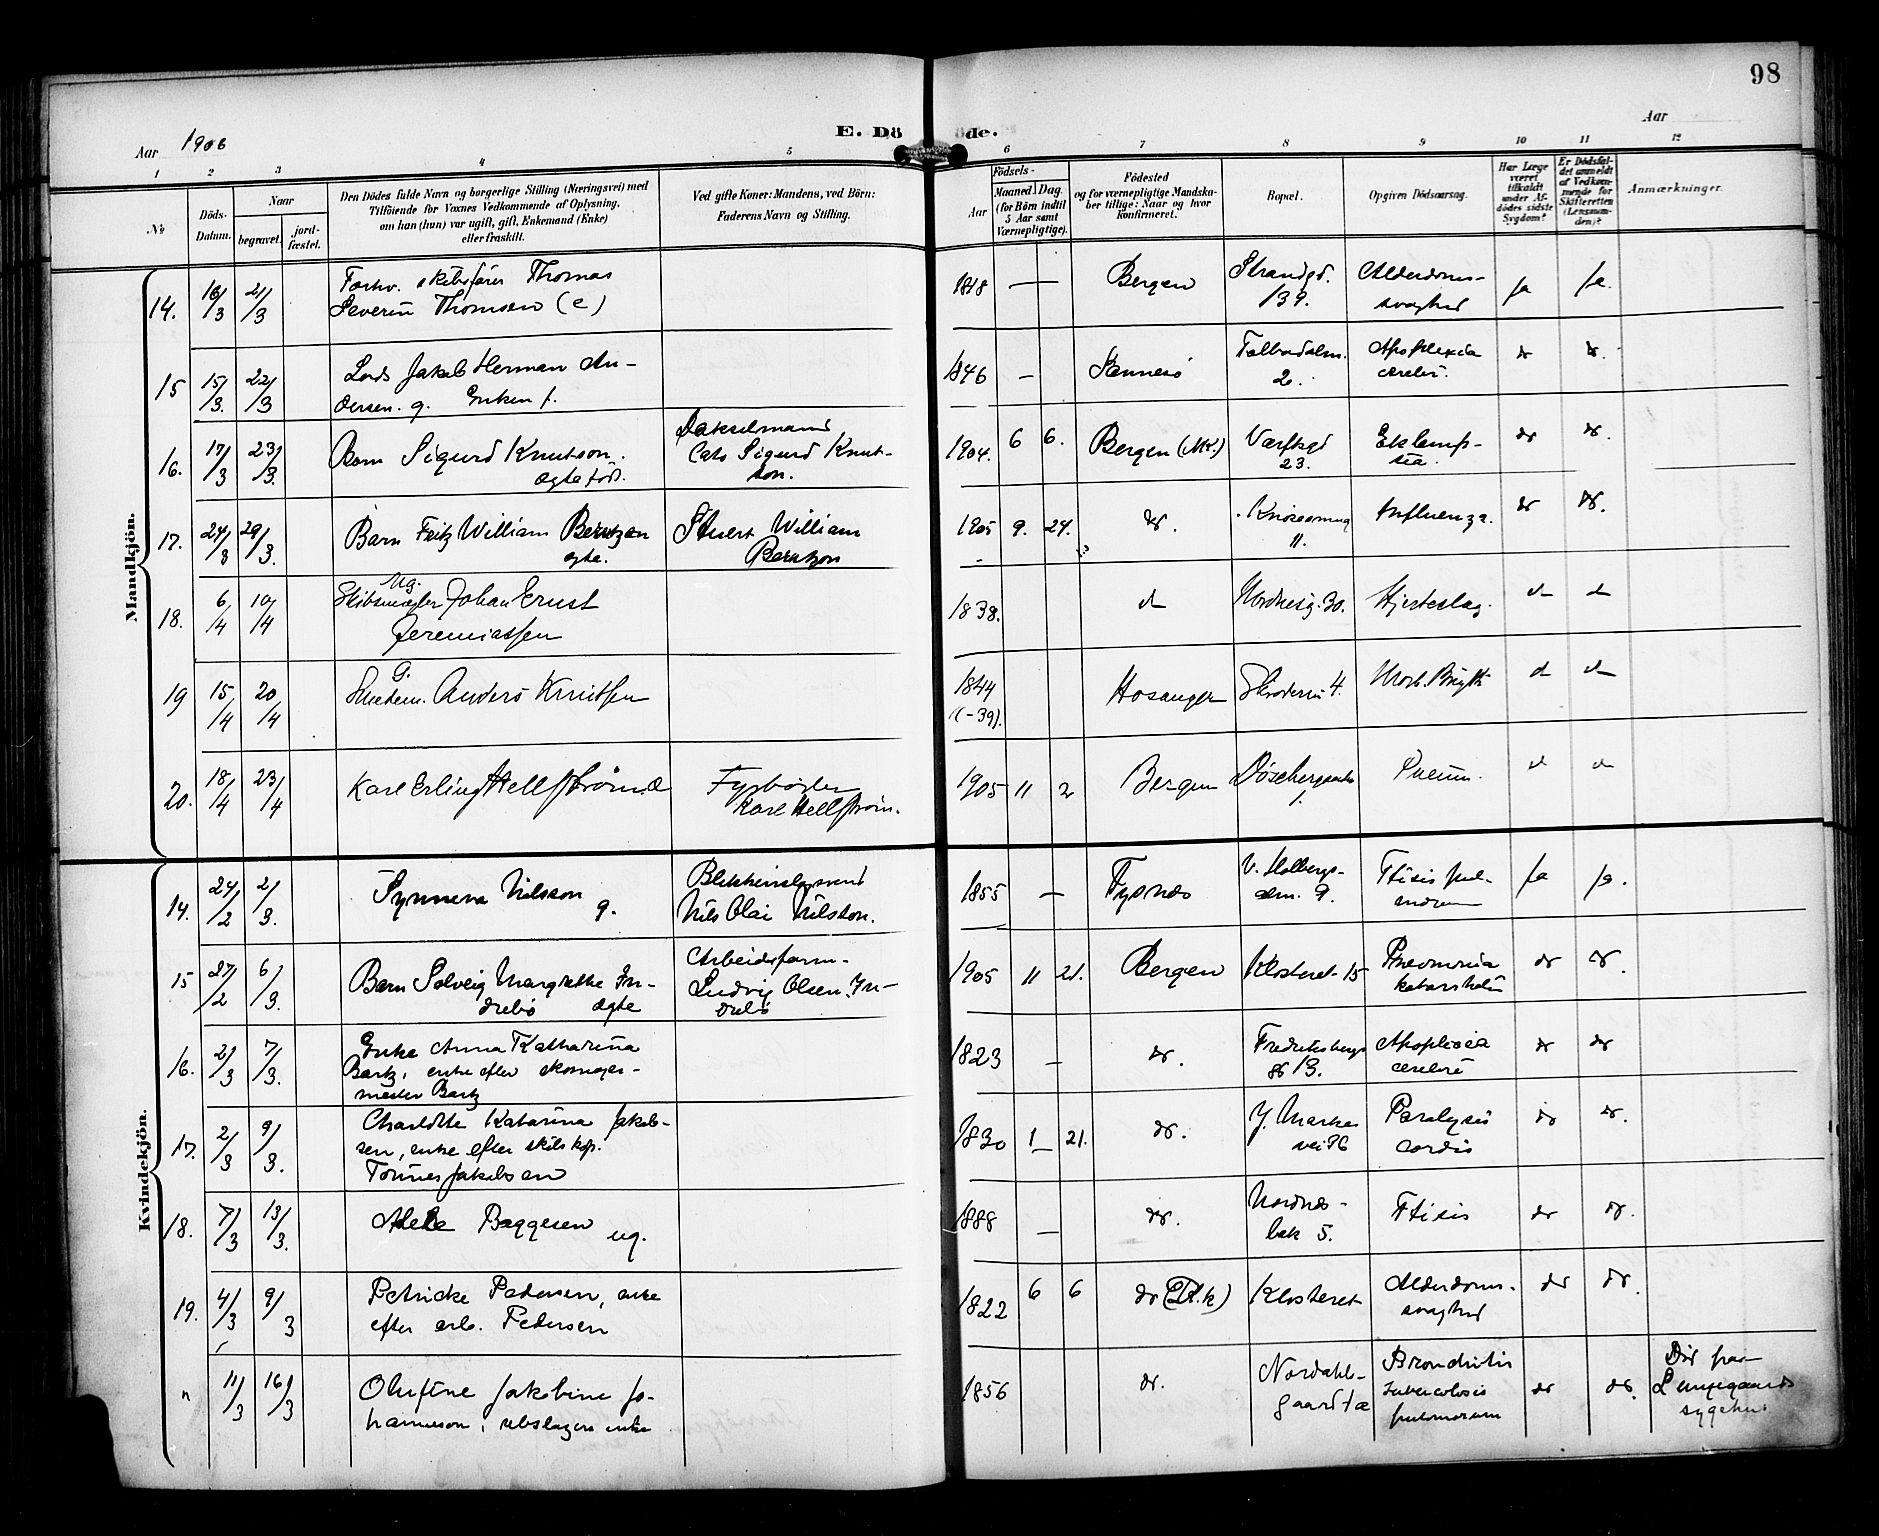 98
Aar 1906
E. Dö
öde.
Aar
1 2 3 4 5 6 7 8 9 10 11 12
No
Döds-
Datum.
Naar
begravet.
jord-
fæstet.
Den Dödes fulde Navn og borgerlige Stilling (Næringsvei) med
Tilföiende for Voxnes Vedkommende af Oplysning,
om han (hun) var ugift, gift, Enkemand (Enke)
eller fraskilt.
Ved gifte Koner: Mandens, ved Börn:
Faderens Navn og Stilling.
Födsels-
Aar
Maaned. Dag.
(for Börn indtil
5 Aar samt
Værnepligtige).
Födested
og for værnepligtige Mandska-
ber tillige: Naar og hvor
Konfirmeret.
Bopæl.
Opgiven Dödsaarsag.
Har Læge
været
tilkaldt
under Af-
dödes sidste
Sygdom?
Er Dödsfal-
det anmeldt
af Vedkom-
mende for
Skifteretten
(Lensman-
den)?
Anmærkninger.
Mandkjön.
14. 16/3 21/3 Forhv. skibsfører Thomas
Severin Thomsen (e) 1848 — Bergen Strandgd. 139. Alderdoms-
svaghed ja ja.
15 15/3. 22/3 Lods Jakob Herman An-
dersen. g. 1846 — Tolbodalm.
2. Apoplexia
cerebri. do do.
16. 17/3 23/3. Barn Sigurd Knutson.
ægte fød. Cato Sigurd Knut-
son. 1904. 6 6. Bergen (Mk.) Værftsgd
23. Eklamp-
sia. do do.
17. 24/3 29/3. Barn Fritz William Berntzen
ægte. Stuert William
Berntzen 1905 9. 24. do. 11. Influenza. do do.
18. 6/4 10/4 Ug.
Skibsmægler Johan Ernst
Jeremiassen 1838. do Nordnesg. 30. Hjerteslag. do do
19 15/4 20/4 G.
Anders Knutsen 1844
(-39). Hosanger 4. Morb. Brigthi do do
20. 18/4 23/4 Karl Erling Hellstrøm. Æ Fyrbøder
Karl Hellstrøm. 1905 11 2 Bergen 1. Pneum. do do
Kvindekjön.
14. 24/2 2/3. Synneva Nilsson g. Blikkenslagersvend
Nils Olai Nilsson. 1855 — Fusnæs V. Holbergs-
alm. 9. Ftisis pul-
monum ja ja.
15 27/2 6/3. Barn Solveig Margrethe In-
drebø ægte Arbeidsform-
Ludvig Olsen In-
drebø 1905 11 21. Bergen Klosteret 15 Pneomonia
katarrhalis do do.
16. 2/3 7/3. Enke Anna Katharina
Bartz, enke efter skomager-
mester Bartz 1823 — do. Fredriksbergs
gt 13. Apoplexia
cerebri do do
17. 2/3 9/3. Charlotte Katarina Jakob-
sen, enke efter skibskap.
Tønnes Jakobsen 1830 1 21. do. Y. Markev
vei 26 Paralysis
cordis do do.
18. 7/3 13/3. Adele Baggesen ug. 1888 — do. Nordnæs-
bak 5. Ftisis do do.
19. 4/3 9/3 Petricke Pedersen, enke
efter arb. Pedersen 1822 6 6 do Klosteret Alderdoms-
svaghed do do.
" 11/3 16/3 Olufine Jakobine Jo-
hannesson, enke 1856 do. Nordahls-
gaard 1a Bronchitis
tuberculosis
pulmonum do do. Død paa
Lungegaards
sygehus